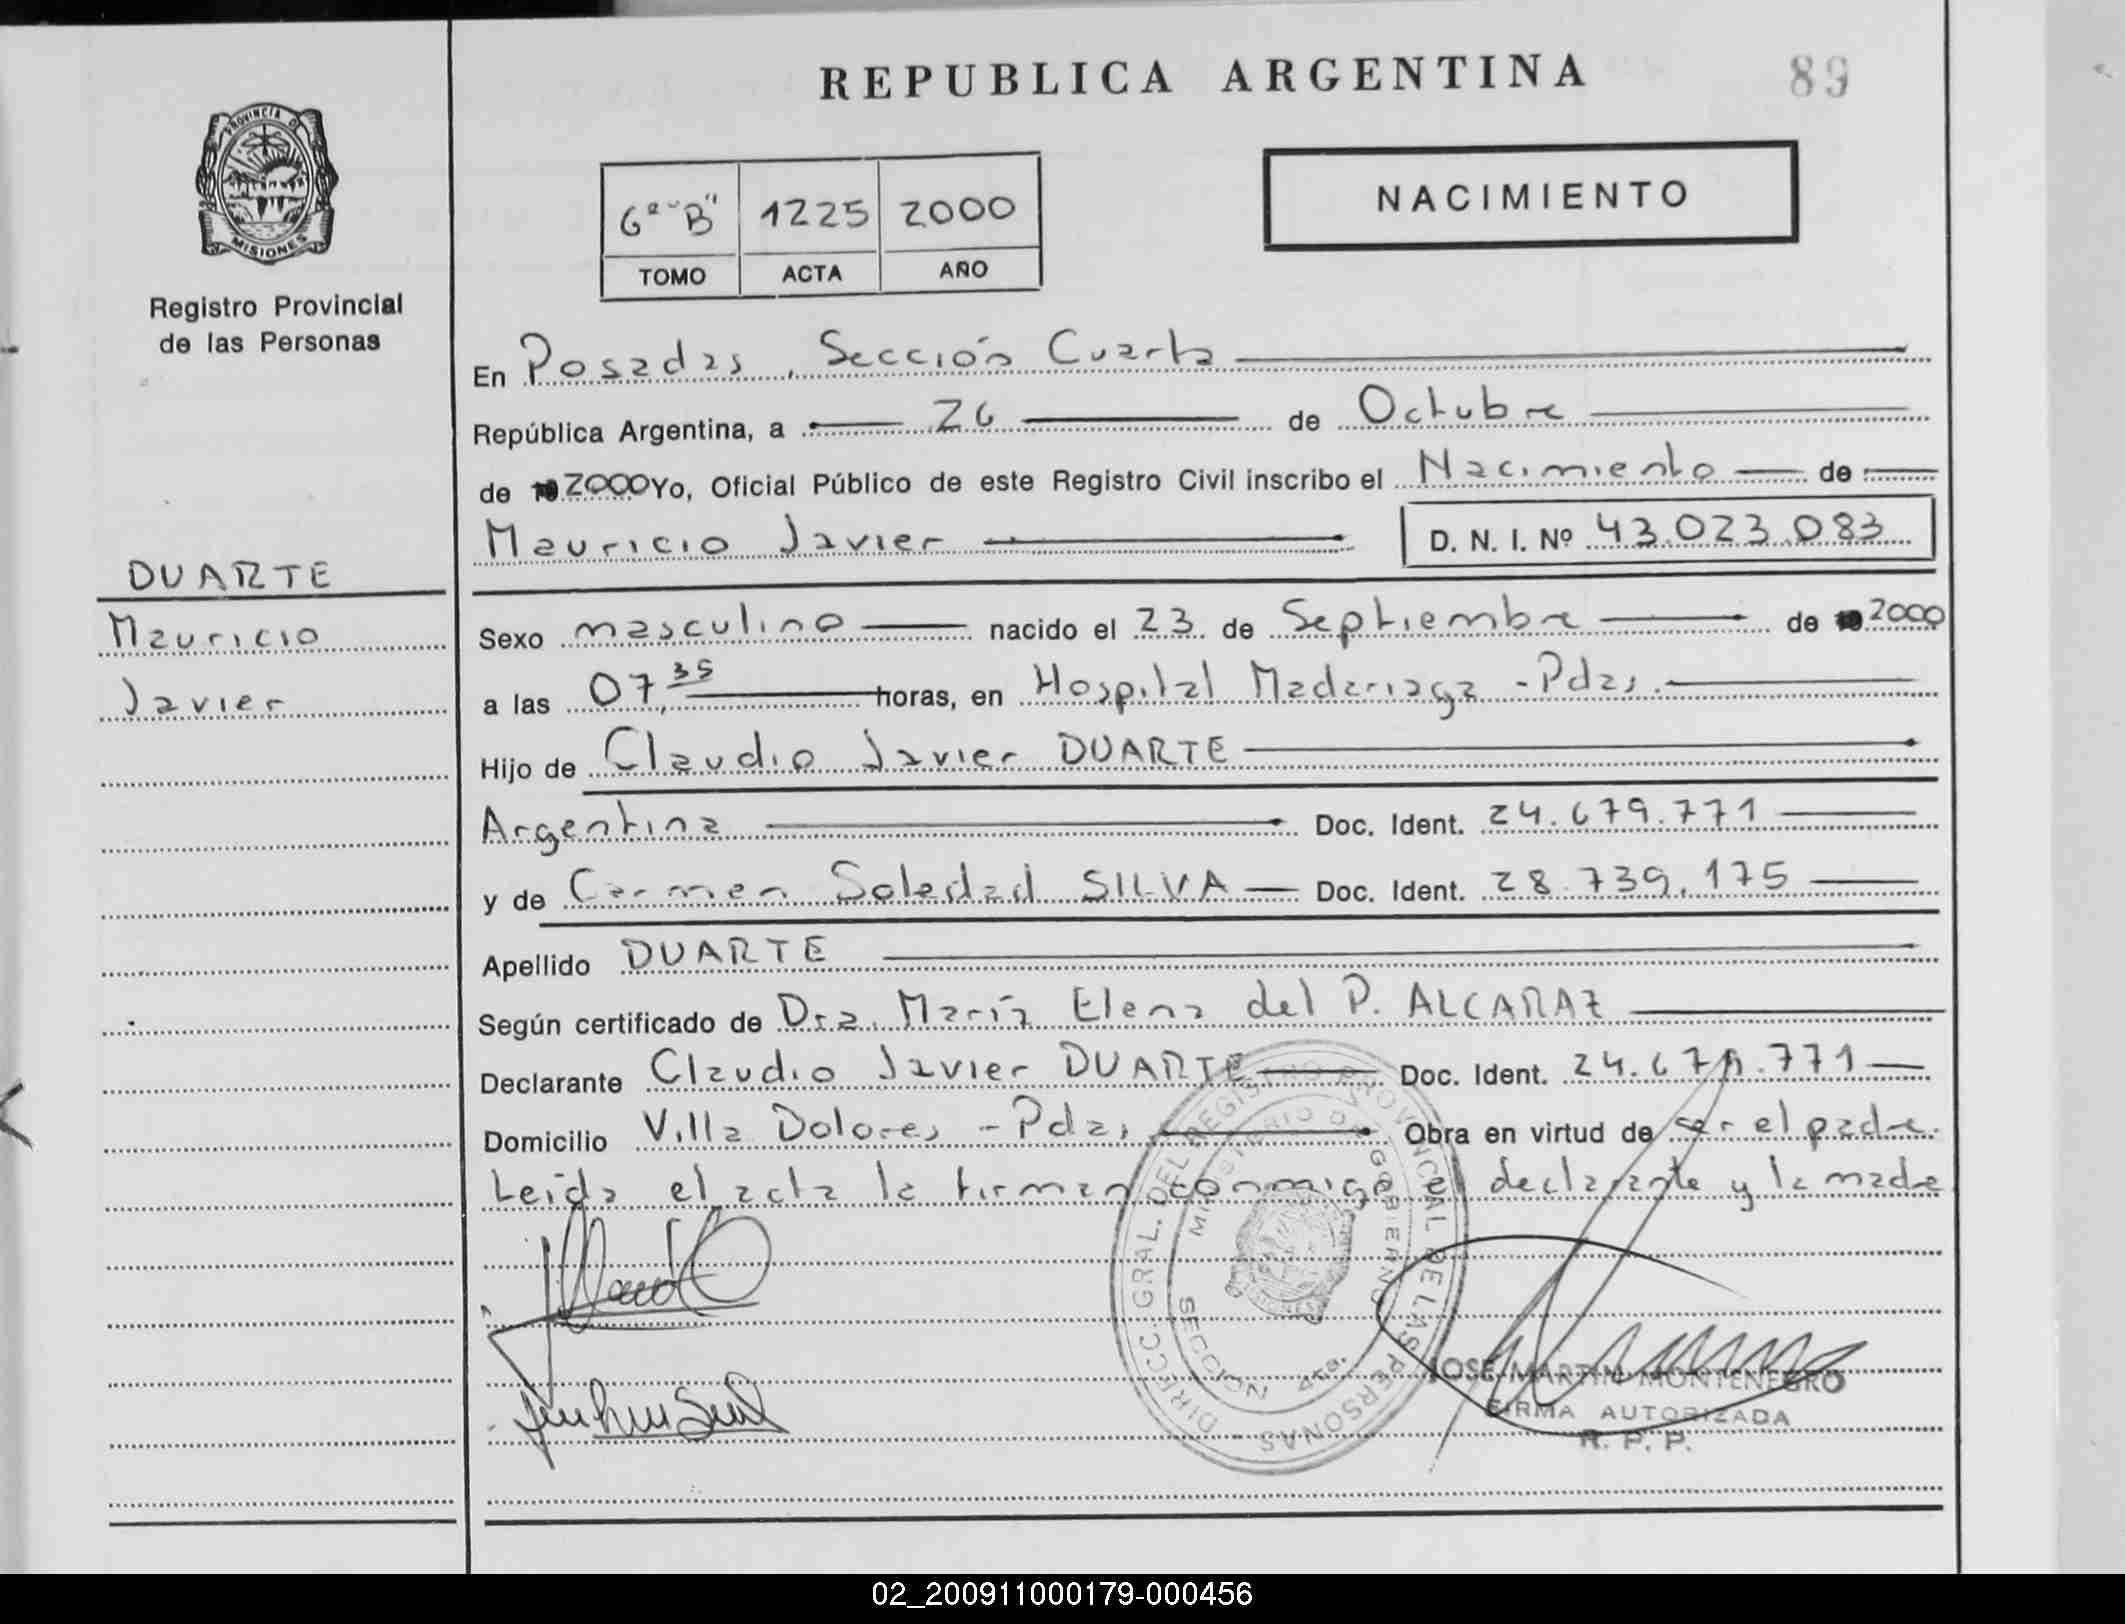 REPUBLICA ARGENTINA
89
PROVINCIA DE
MISIONES
Registro Provincial
de las Personas
6ª "B" 1225 2000
TOMO ACTA AÑO
NACIMIENTO
En Posadas, Sección Cuarta
República Argentina, a 26 de Octubre
de 2000 Yo, Oficial Público de este Registro Civil inscribo el Nacimiento de
Mauricio Javier D. N. I. Nº 43.023.083
DUARTE
Mauricio
Javier
Sexo masculino nacido el 23 de Septiembre de 2000
a las 07,35 horas, en Hospital Madariaga - Pdas.
Hijo de Claudio Javier DUARTE
Argentina Doc. Ident. 24.679.771
y de Carmen Soledad SILVA Doc. Ident. 28.739.175
Apellido DUARTE
Según certificado de Dra. María Elena del P. ALCARAZ
Declarante Claudio Javier DUARTE Doc. Ident. 24.679.771
Domicilio Villa Dolores - Pdas. Obra en virtud de ser el padre.
Leída el acta la firman conmigo el declarante y la madre
DIRECC. GRAL. DEL REGISTRO PROVINCIAL DE LAS PERSONAS
MINISTERIO DE GOBIERNO
SECCION 4ta.
JOSE MARTIN MONTENEGRO
FIRMA AUTORIZADA
R. P. P.
02_200911000179-000456